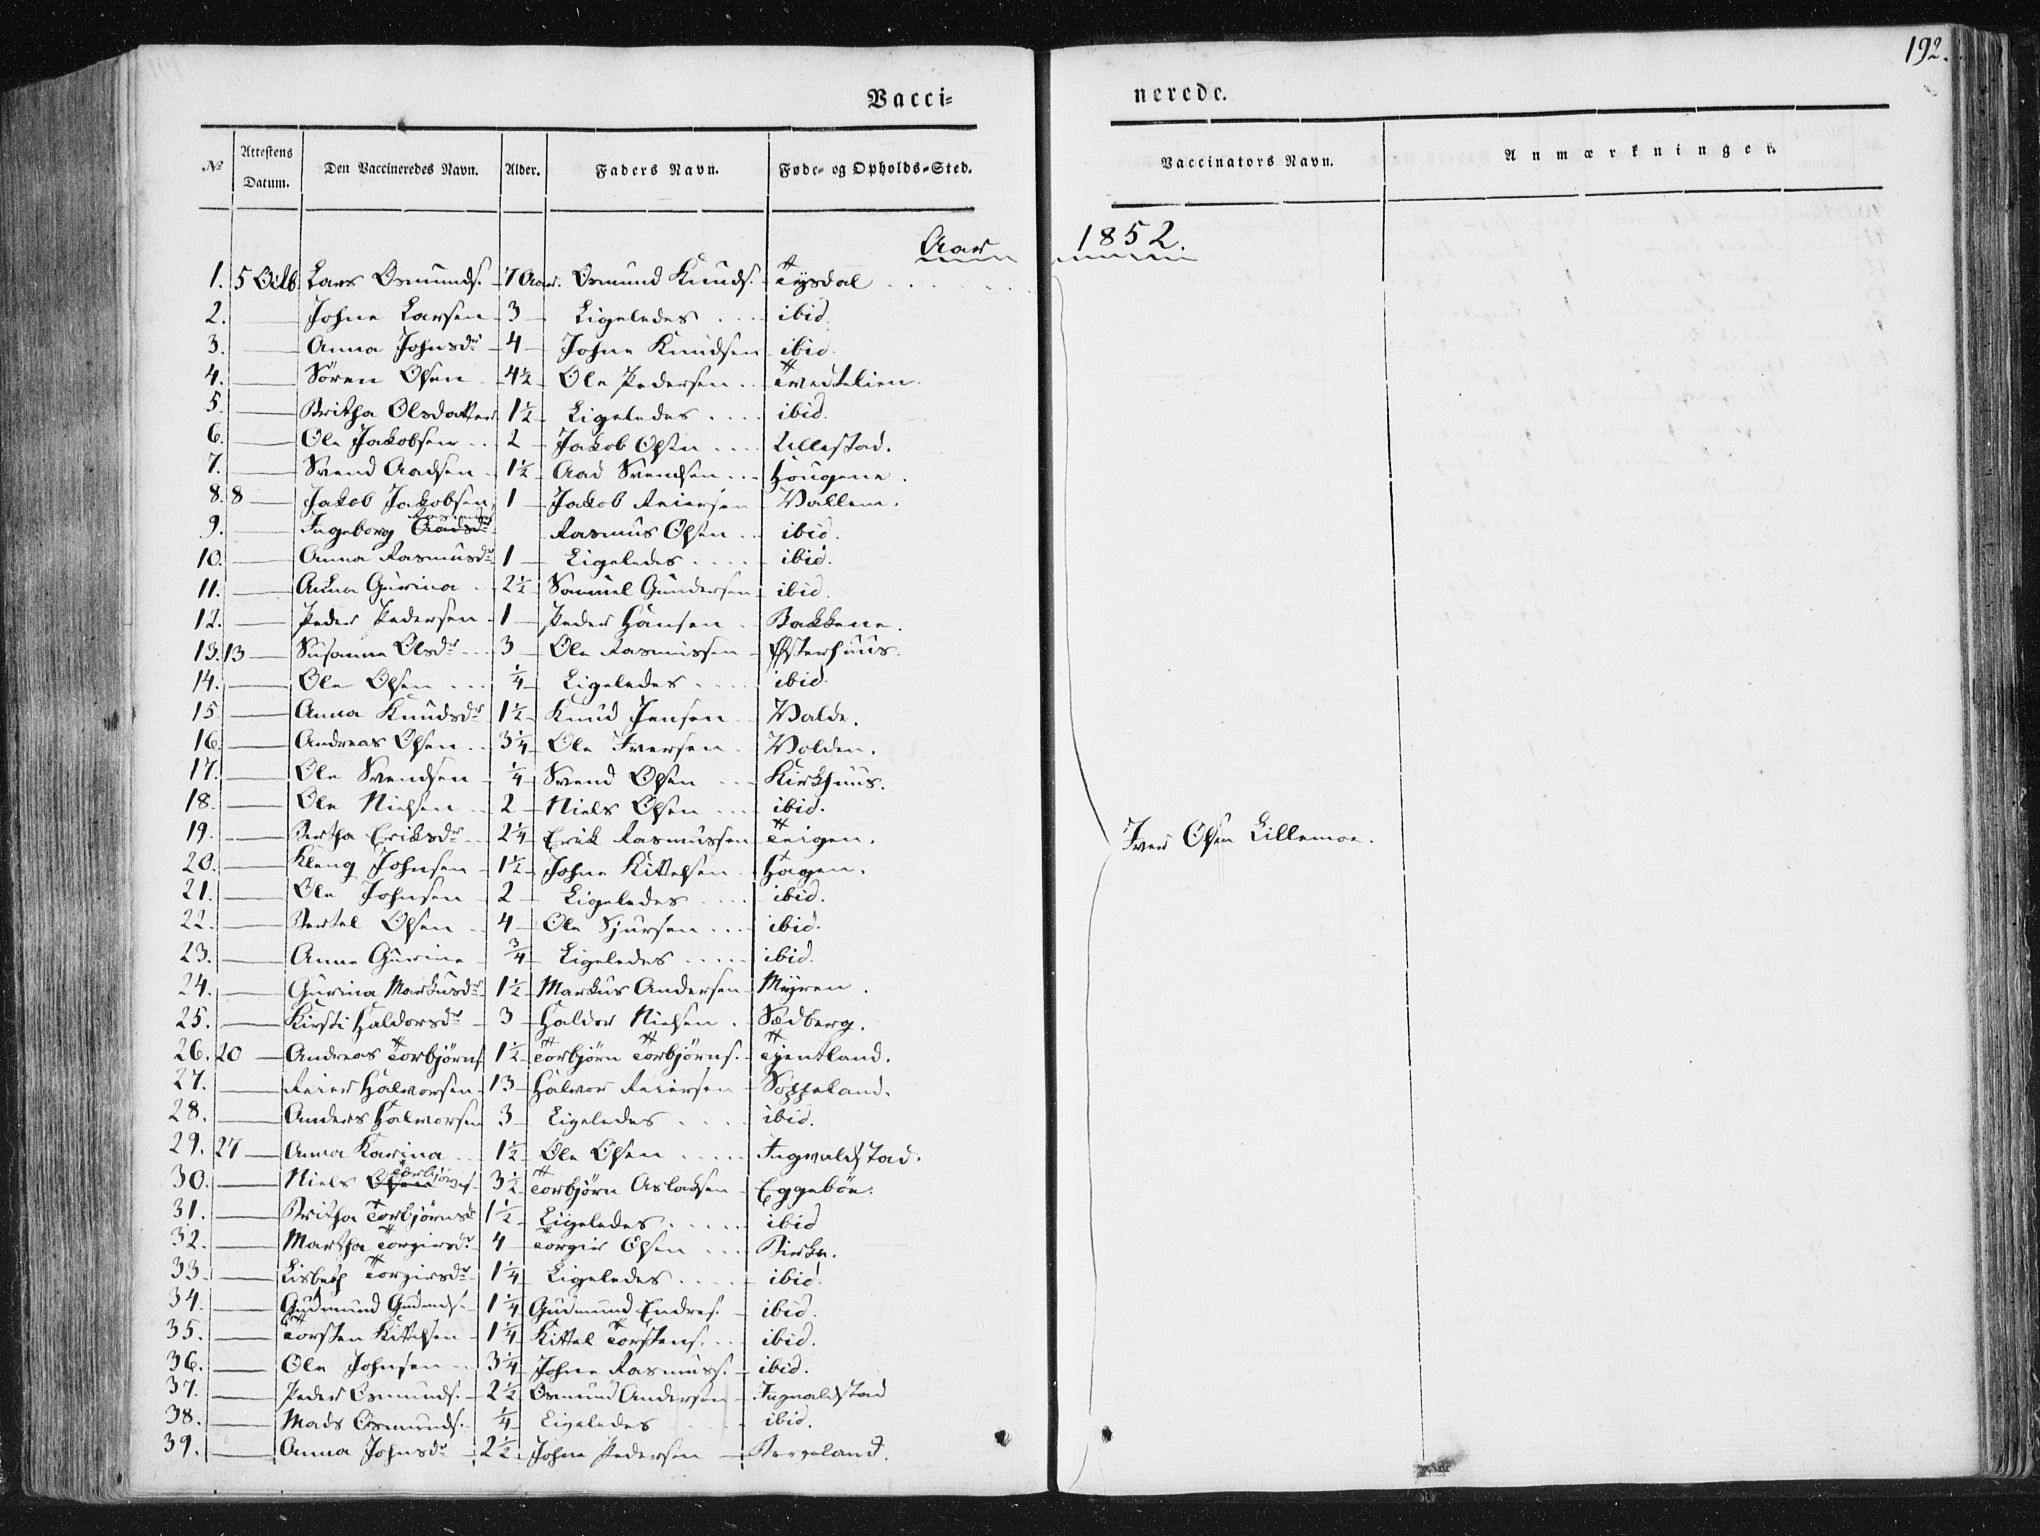 192.
Vacci=
nerede.
No Attestens Datum. Den Vaccineredes Navn. Alder. Faders Navn. Føde= og Opholds=Sted.
Vaccinators Navn. Anmærkninger.
Aar 1852.
1. 5 Octb. Lars Osmunds. 7 Aar. Osmund Knuds. Tysdal
2. — Johne Larsen 3 Ligeledes ibid.
3. — Anna Johnsdr 4 Johne Knudsen ibid.
4. — Sören Olsen 4½ Ole Pedersen Tvedtelien.
5. — Britha Olsdatter 1½ Ligeledes ibid.
6. — Ole Jakobsen 2 Jakob Olsen Ullestad.
7. — Svend Aadsen 1½ Aad Svendsen Hougene.
8. 8 — Jakob Jakobsen 1 Jakob Reiersen Vallem.
9. — Ingeborg Rasmusd Rasmus Olsen ibid.
10. — Anna Rasmusdr 1 Ligeledes ibid.
11. — Anna Gurina 2½ Samuel Gundersen ibid.
12. — Peder Pedersen 1 Peder Hansen Bakkene.
13. 13 — Susanna Olsdr 3 Ole Rasmussen Østerhuus.
14. — Ole Olsen ¼ Ligeledes ibid.
15. — Anna Knudsdr 1½ Knud Jensen Valde.
16. — Andreas Olsen 3¼ Ole Iversen Volden.
17. — Ole Svendsen ¼ Svend Olsen Kirkhuus.
18. — Ole Nielsen 2 Niels Olsen ibid.
19. — Bertha Eriksdr 2¼ Erik Rasmussen Teigen.
Iver Olsen Lillemoe.
20. — Kleng Johnsen 1½ Johne Kittelsen Hagen.
21. — Ole Johnsen 2 Ligeledes ibid.
22. — Bertel Olsen 4 Ole Sjursen ibid.
23. — Anne Gurine ¾ Ligeledes ibid.
24. — Gurina Markusdr 1½ Markus Andersen Myren.
25. — Kirsti Haldorsdr 3 Haldor Nielsen Sædberg.
26. 20 — Andreas Torbjörns. 1½ Torbjörn Torbjörns. Tjentland.
27. — Reier Halvorsen 13 Halvor Reiersen Soppeland.
28. — Anders Halvorsen 3 Ligeledes ibid.
29. 27 — Anna Karina 1½ Ole Olsen Ingvaldstad.
30. — Niels Torbjörns. 3½ Torbjörn Aslaksen Eggeböe.
31. — Britha Torbjörnsdr 1½ Ligeledes ibid
32. — Martha Torgiersdr 4 Torgier Olsen Birke.
33. — Lisbeth Torgiersdr 1¼ Ligeledes ibid.
34. — Gudmund Gudmds. 1¼ Gudmund Endres. ibid.
35. — Torsten Kittelsen 1¼ Kittel Torstens. ibid.
36. — Ole Johnsen 3¼ Johne Rasmuss. ibid.
37. — Peder Osmunds. 2½ Osmund Andersen Ingvaldstad
38. — Mads Osmunds. ¼ Ligeledes ibid.
39. — Anna Johnsdr 2½ Johne Pedersen